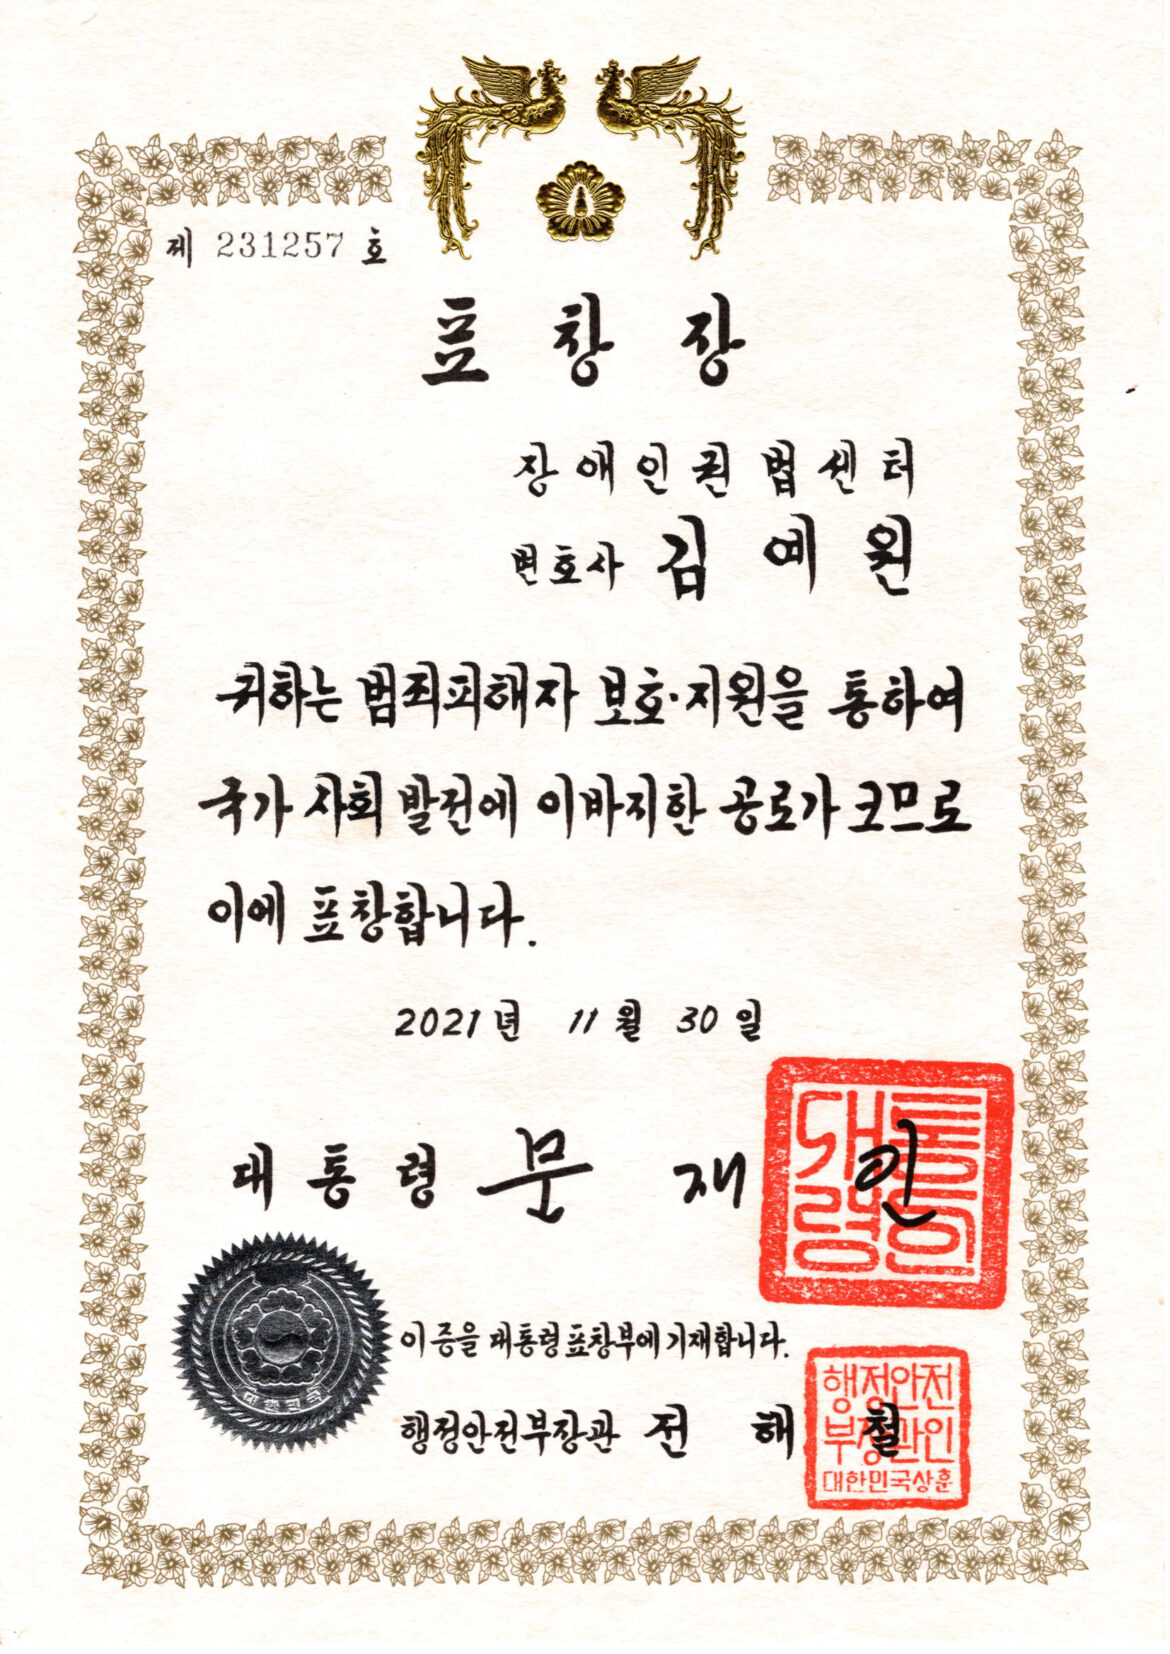 제 231257 호
표창장
장애인권법센터
변호사 김예원
귀하는 범죄피해자 보호·지원을 통하여
국가 사회 발전에 이바지한 공로가 크므로
이에 표창합니다.
2021년 11월 30일
대통령 문재인
대통령인
이 증을 대통령 표창부에 기재합니다.
행정안전부장관 전해철
행정안전
부장관인
대한민국상훈
대한민국